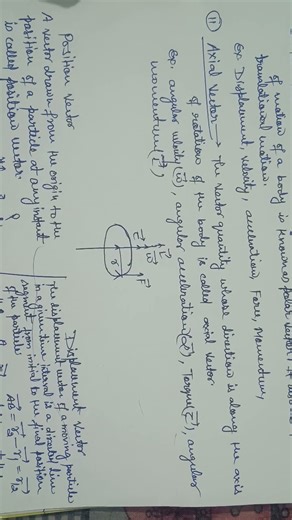 of motion of a body is known as polar vector. It
translational motion.
Ex. Displacement, velocity, acceleration, Force, Momentum,
(ii) Axial Vector → The vector quantity whose direction is along the axis
of rotation of the body is called axial vector
Ex. angular velocity (ω⃗), angular acceleration (α⃗), Torque (τ⃗), angular
momentum (L⃗)
ω⃗
r
F⃗
Position Vector
A vector drawn from the origin to the
position of a particle at any instant
is called position vector.
Displacement Vector
The displacement vector of a moving particle
in a given time interval is a directed line
segment from initial to the final position
of the particle